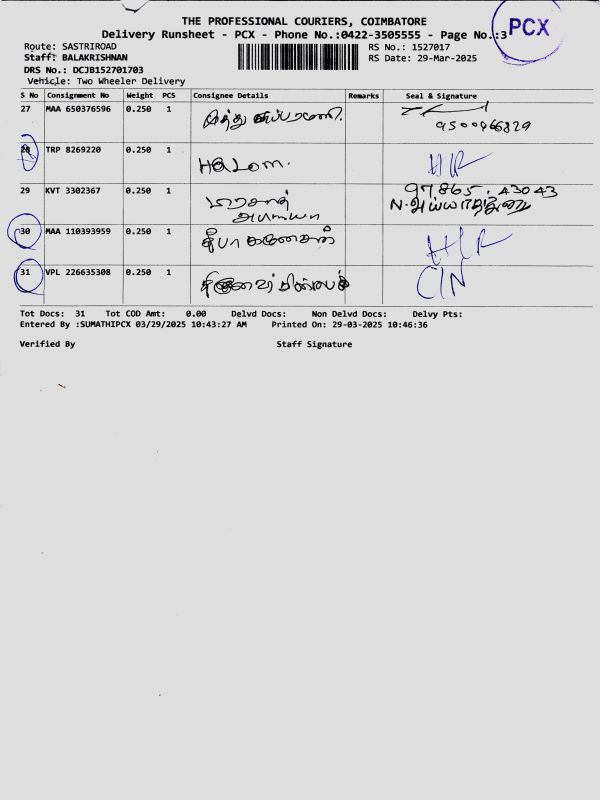 THE PROFESSIONAL COURIERS, COIMBATORE
Delivery Runsheet - PCX - Phone No.:0422-3505555 - Page No.:3
PCX
Route: SASTRIROAD
RS No.: 1527017
Staff: BALAKRISHNAN
RS Date: 29-Mar-2025
DRS No.: DCJB152701703
Vehicle: Two Wheeler Delivery
S No Consignment No Weight PCS Consignee Details Remarks Seal & Signature
27 MAA 650376596 0.250 1
28 TRP 8269220 0.250 1
29 KVT 3302367 0.250 1
30 MAA 110393959 0.250 1
31 VPL 226635308 0.250 1 CIN
Tot Docs: 31 Tot COD Amt: 0.00 Delvd Docs: Non Delvd Docs: Delvy Pts:
Entered By :SUMATHIPCX 03/29/2025 10:43:27 AM Printed On: 29-03-2025 10:46:36
Verified By Staff Signature